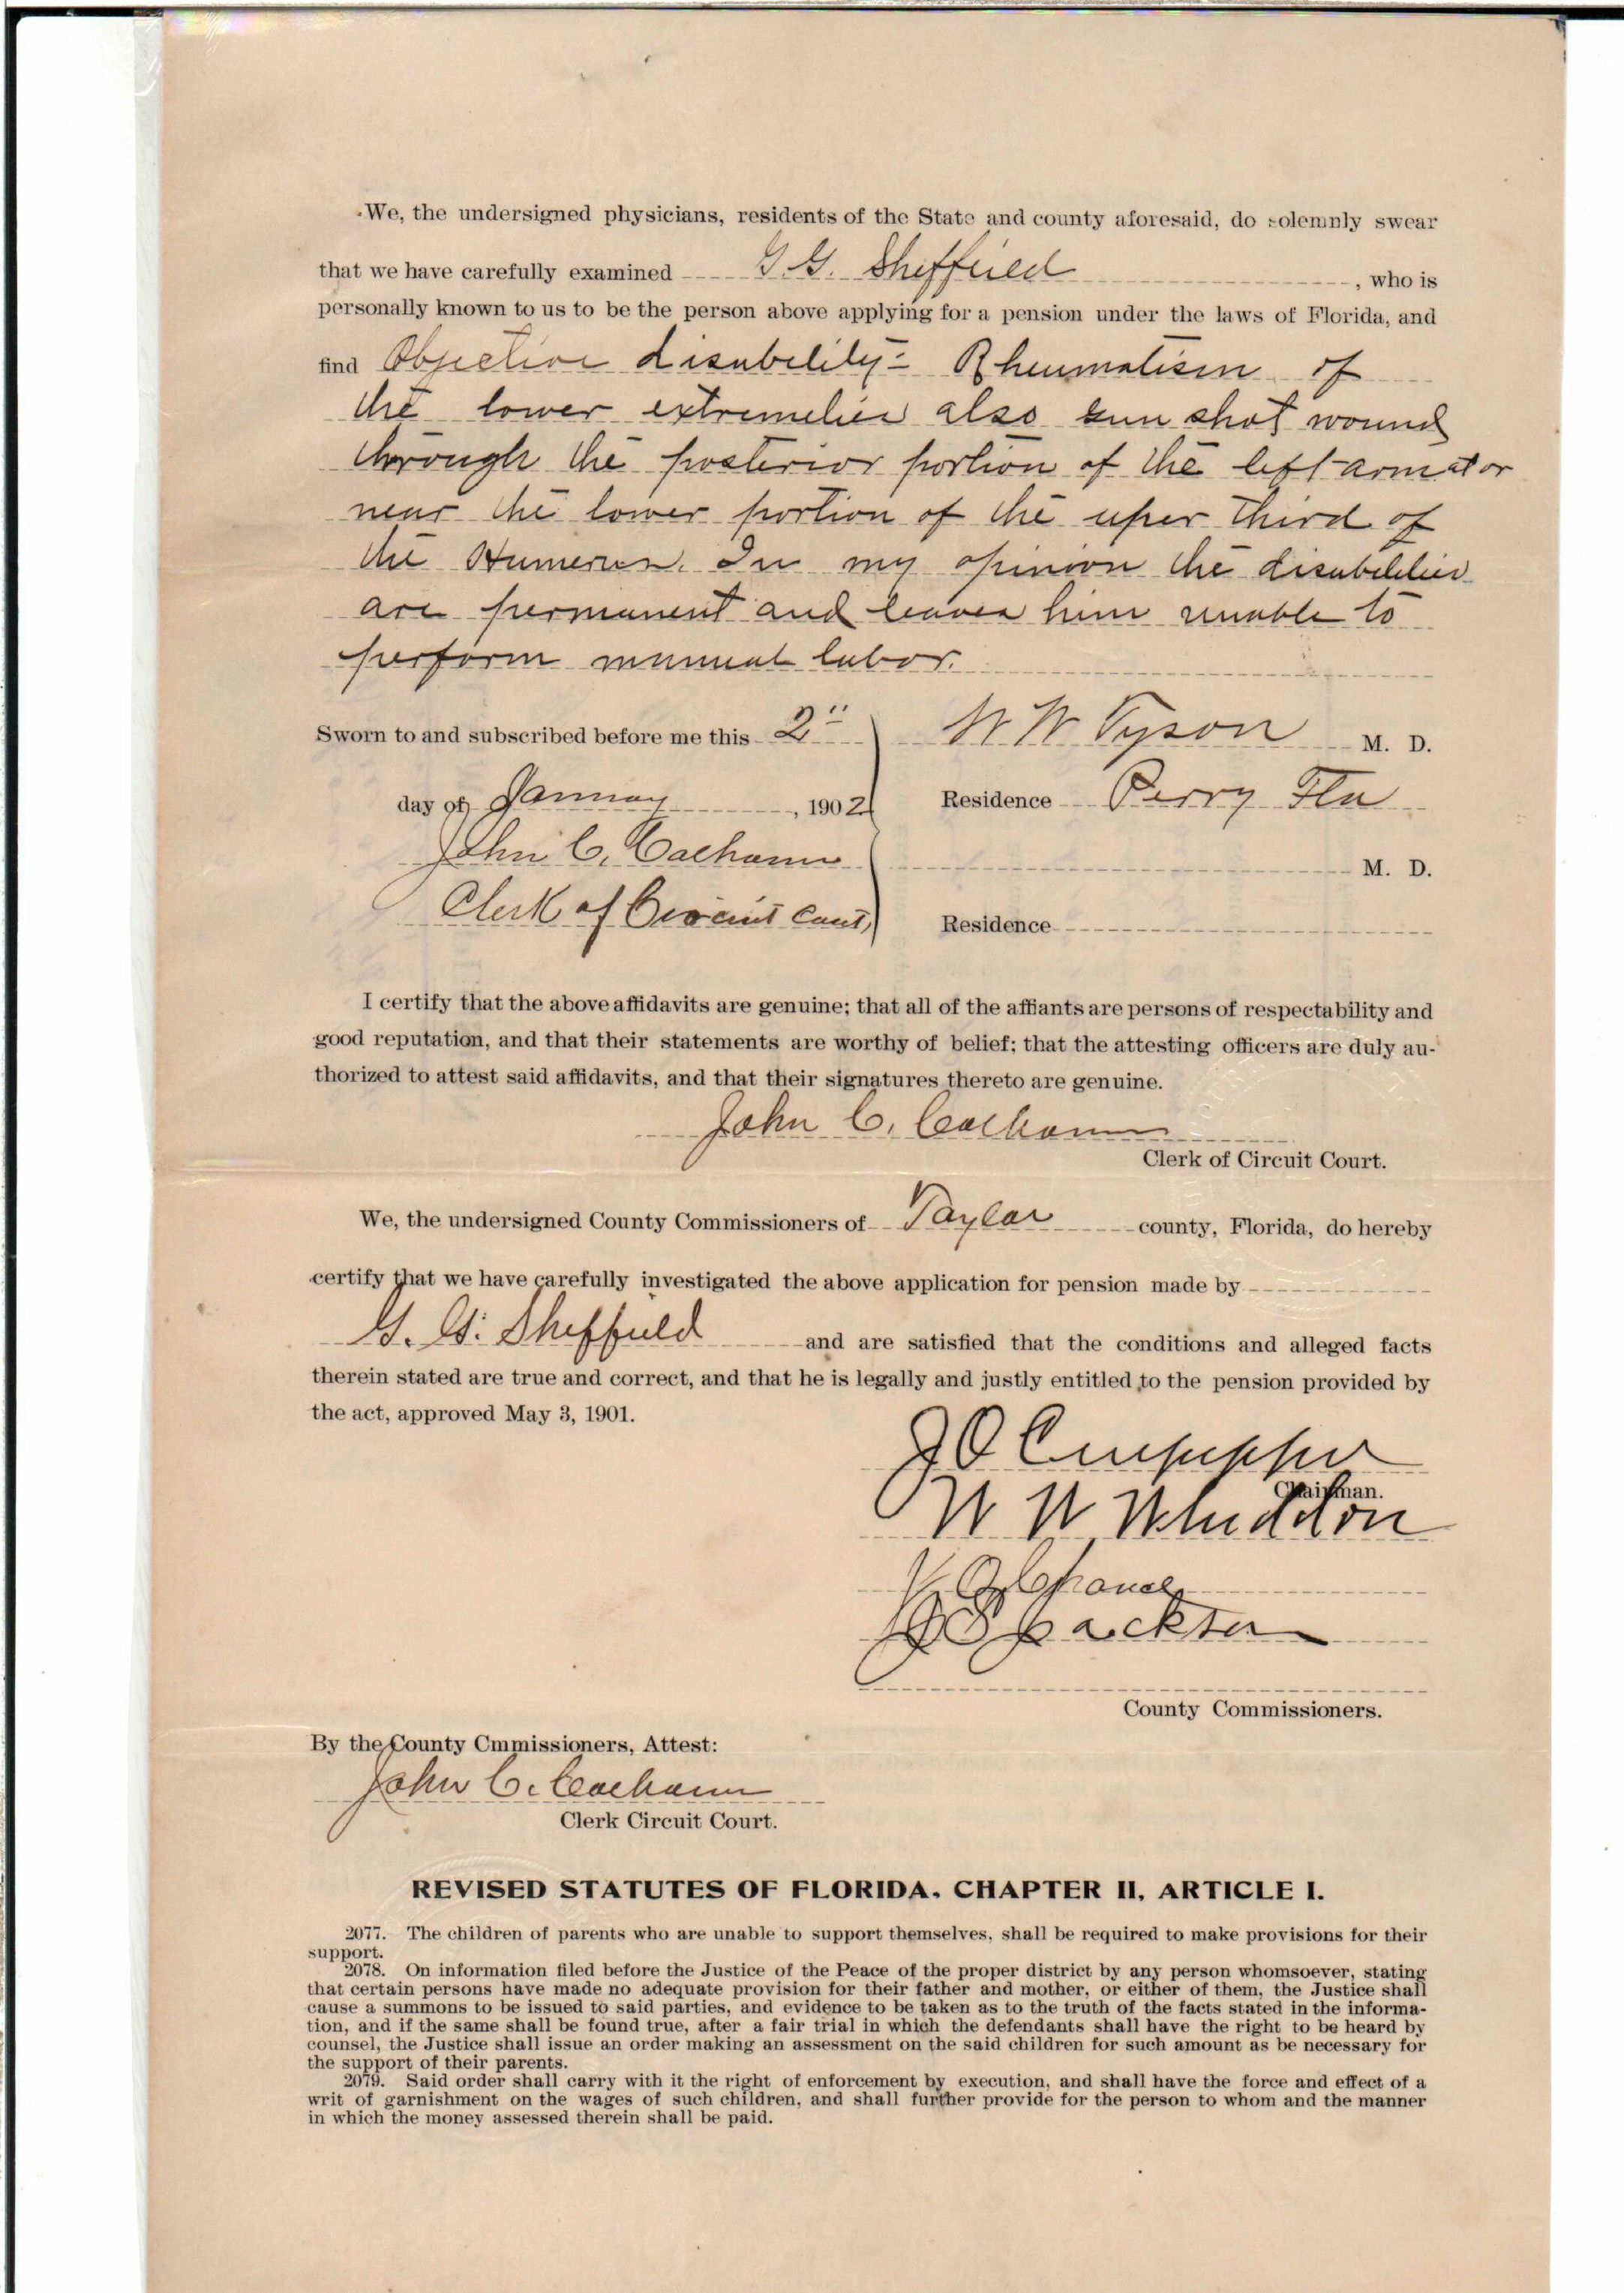 We, the undersigned physicians, residents of the State and county aforesaid, do solemnly swear
that we have carefully examined G. G. Sheffield, who is
personally known to us to be the person above applying for a pension under the laws of Florida, and
find Objective disability:- Rheumatism of
the lower extremities also gun shot wound
through the posterior portion of the left arm at or
near the lower portion of the uper third of
the Humerus. In my opinion the disabilities
are permanent and leaves him unable to
perform manual labor.
Sworn to and subscribed before me this 2" W W Tyson M. D.
day of January, 1902 Residence Perry Fla
John C. Calhoun M. D.
Clerk of Circuit Court, Residence
I certify that the above affidavits are genuine; that all of the affiants are persons of respectability and
good reputation, and that their statements are worthy of belief; that the attesting officers are duly au-
thorized to attest said affidavits, and that their signatures thereto are genuine.
John C. Calhoun
Clerk of Circuit Court.
We, the undersigned County Commissioners of Taylor county, Florida, do hereby
certify that we have carefully investigated the above application for pension made by
G. G. Sheffield and are satisfied that the conditions and alleged facts
therein stated are true and correct, and that he is legally and justly entitled to the pension provided by
the act, approved May 3, 1901.
J O Culpepper
Chairman.
W W Whiddon
Chance
Jackson
County Commissioners.
By the County Cmmissioners, Attest:
John C. Calhoun
Clerk Circuit Court.
REVISED STATUTES OF FLORIDA. CHAPTER II, ARTICLE I.
2077. The children of parents who are unable to support themselves, shall be required to make provisions for their
support.
2078. On information filed before the Justice of the Peace of the proper district by any person whomsoever, stating
that certain persons have made no adequate provision for their father and mother, or either of them, the Justice shall
cause a summons to be issued to said parties, and evidence to be taken as to the truth of the facts stated in the informa-
tion, and if the same shall be found true, after a fair trial in which the defendants shall have the right to be heard by
counsel, the Justice shall issue an order making an assessment on the said children for such amount as be necessary for
the support of their parents.
2079. Said order shall carry with it the right of enforcement by execution, and shall have the force and effect of a
writ of garnishment on the wages of such children, and shall further provide for the person to whom and the manner
in which the money assessed therein shall be paid.